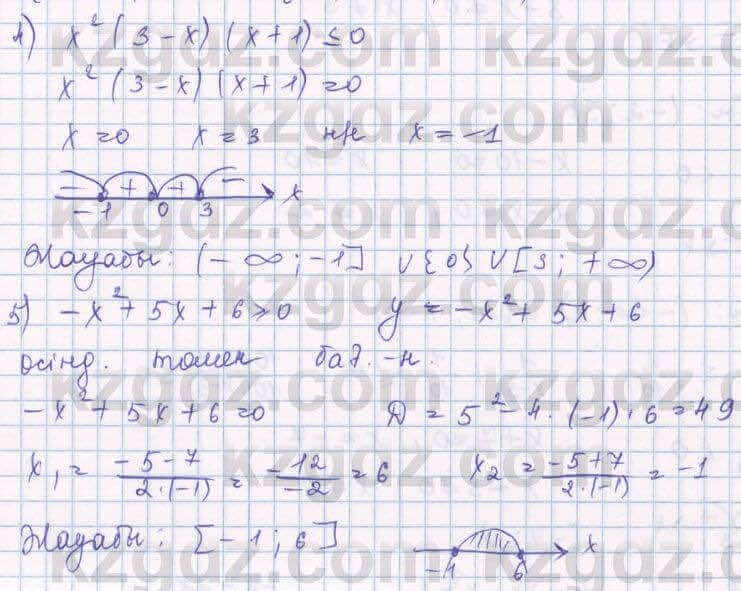 4) x²(3-x)(x+1)≤0
x²(3-x)(x+1)=0
x=0 x=3 x=-1
- + + -
-1 0 3 x
Жауабы: (-∞;-1] ∪{0}∪[3;+∞)
5) -x²+5x+6≥0 y=-x²+5x+6
төмен бағ.-н.
-x²+5x+6=0 D=5²-4·(-1)·6=49
x₁=\frac{-5-7}{2·(-1)}=\frac{-12}{-2}=6 x₂=\frac{-5+7}{2·(-1)}=-1
Жауабы: [-1;6]
-1 6 x
kzgdz.com